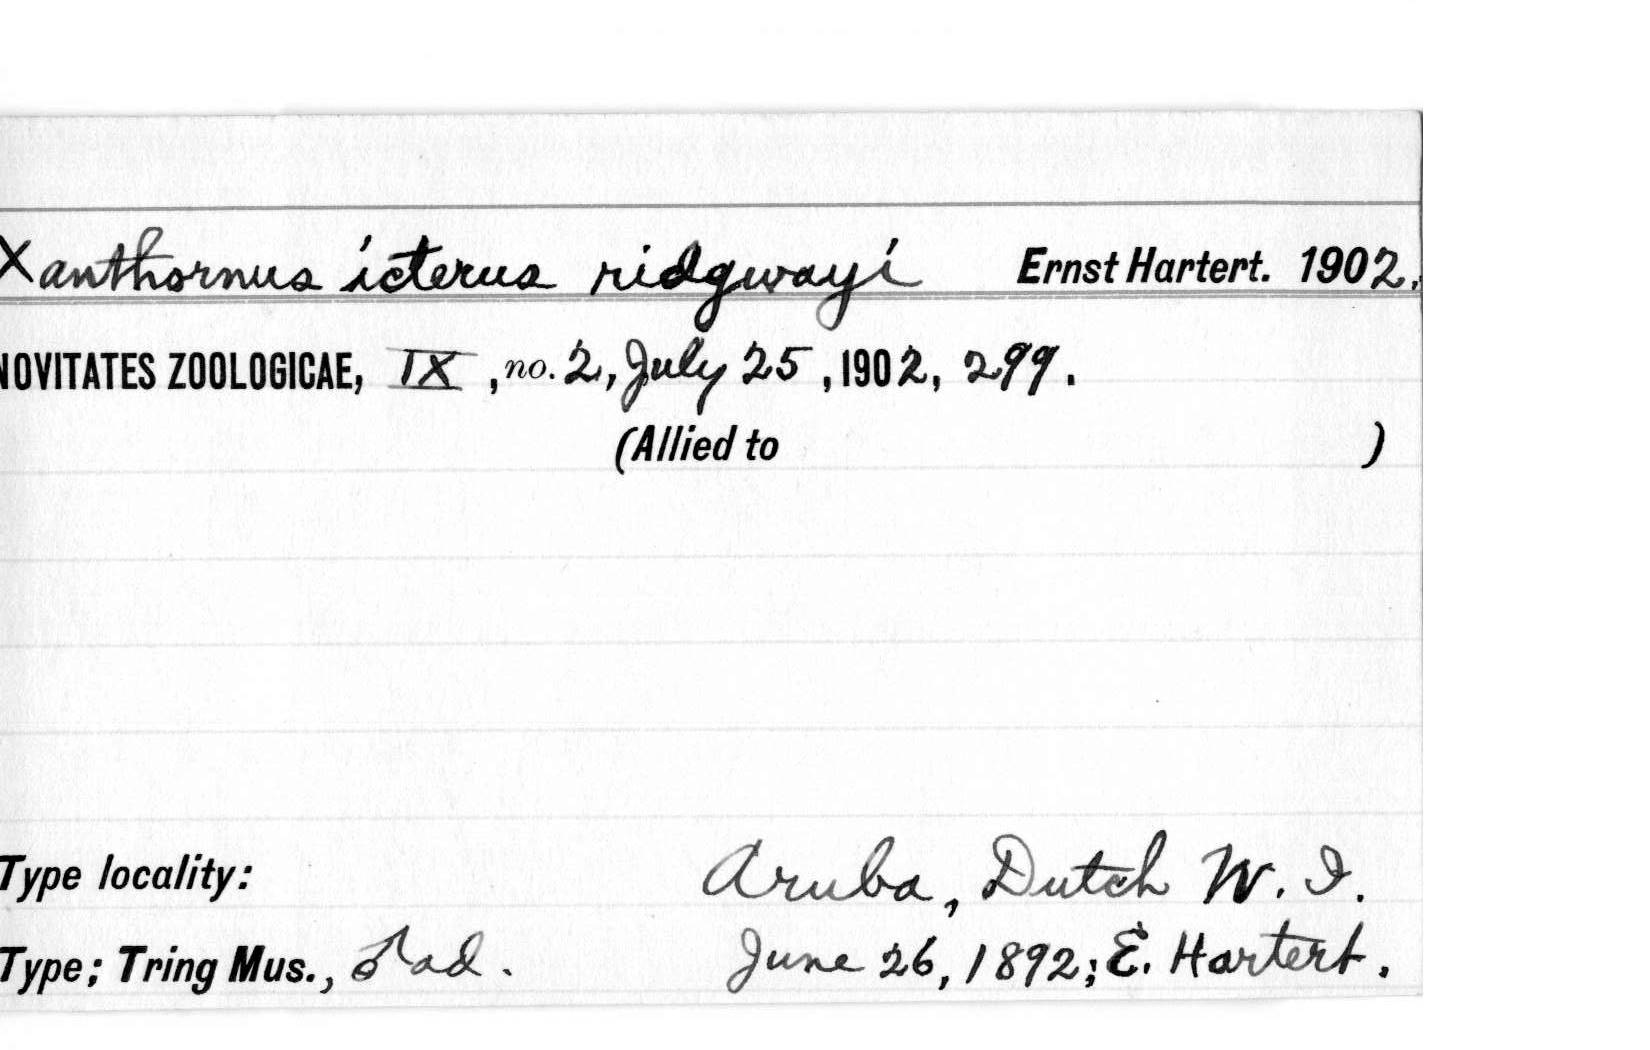 Xanthornus icterus ridgwayi Ernst Hartert. 1902.
NOVITATES ZOOLOGICAE, IX, no. 2, July 25, 1902, 299.
(Allied to )
Type locality: Aruba, Dutch W. I.
Type; Tring Mus., ♂ ad. June 26, 1892; E. Hartert.